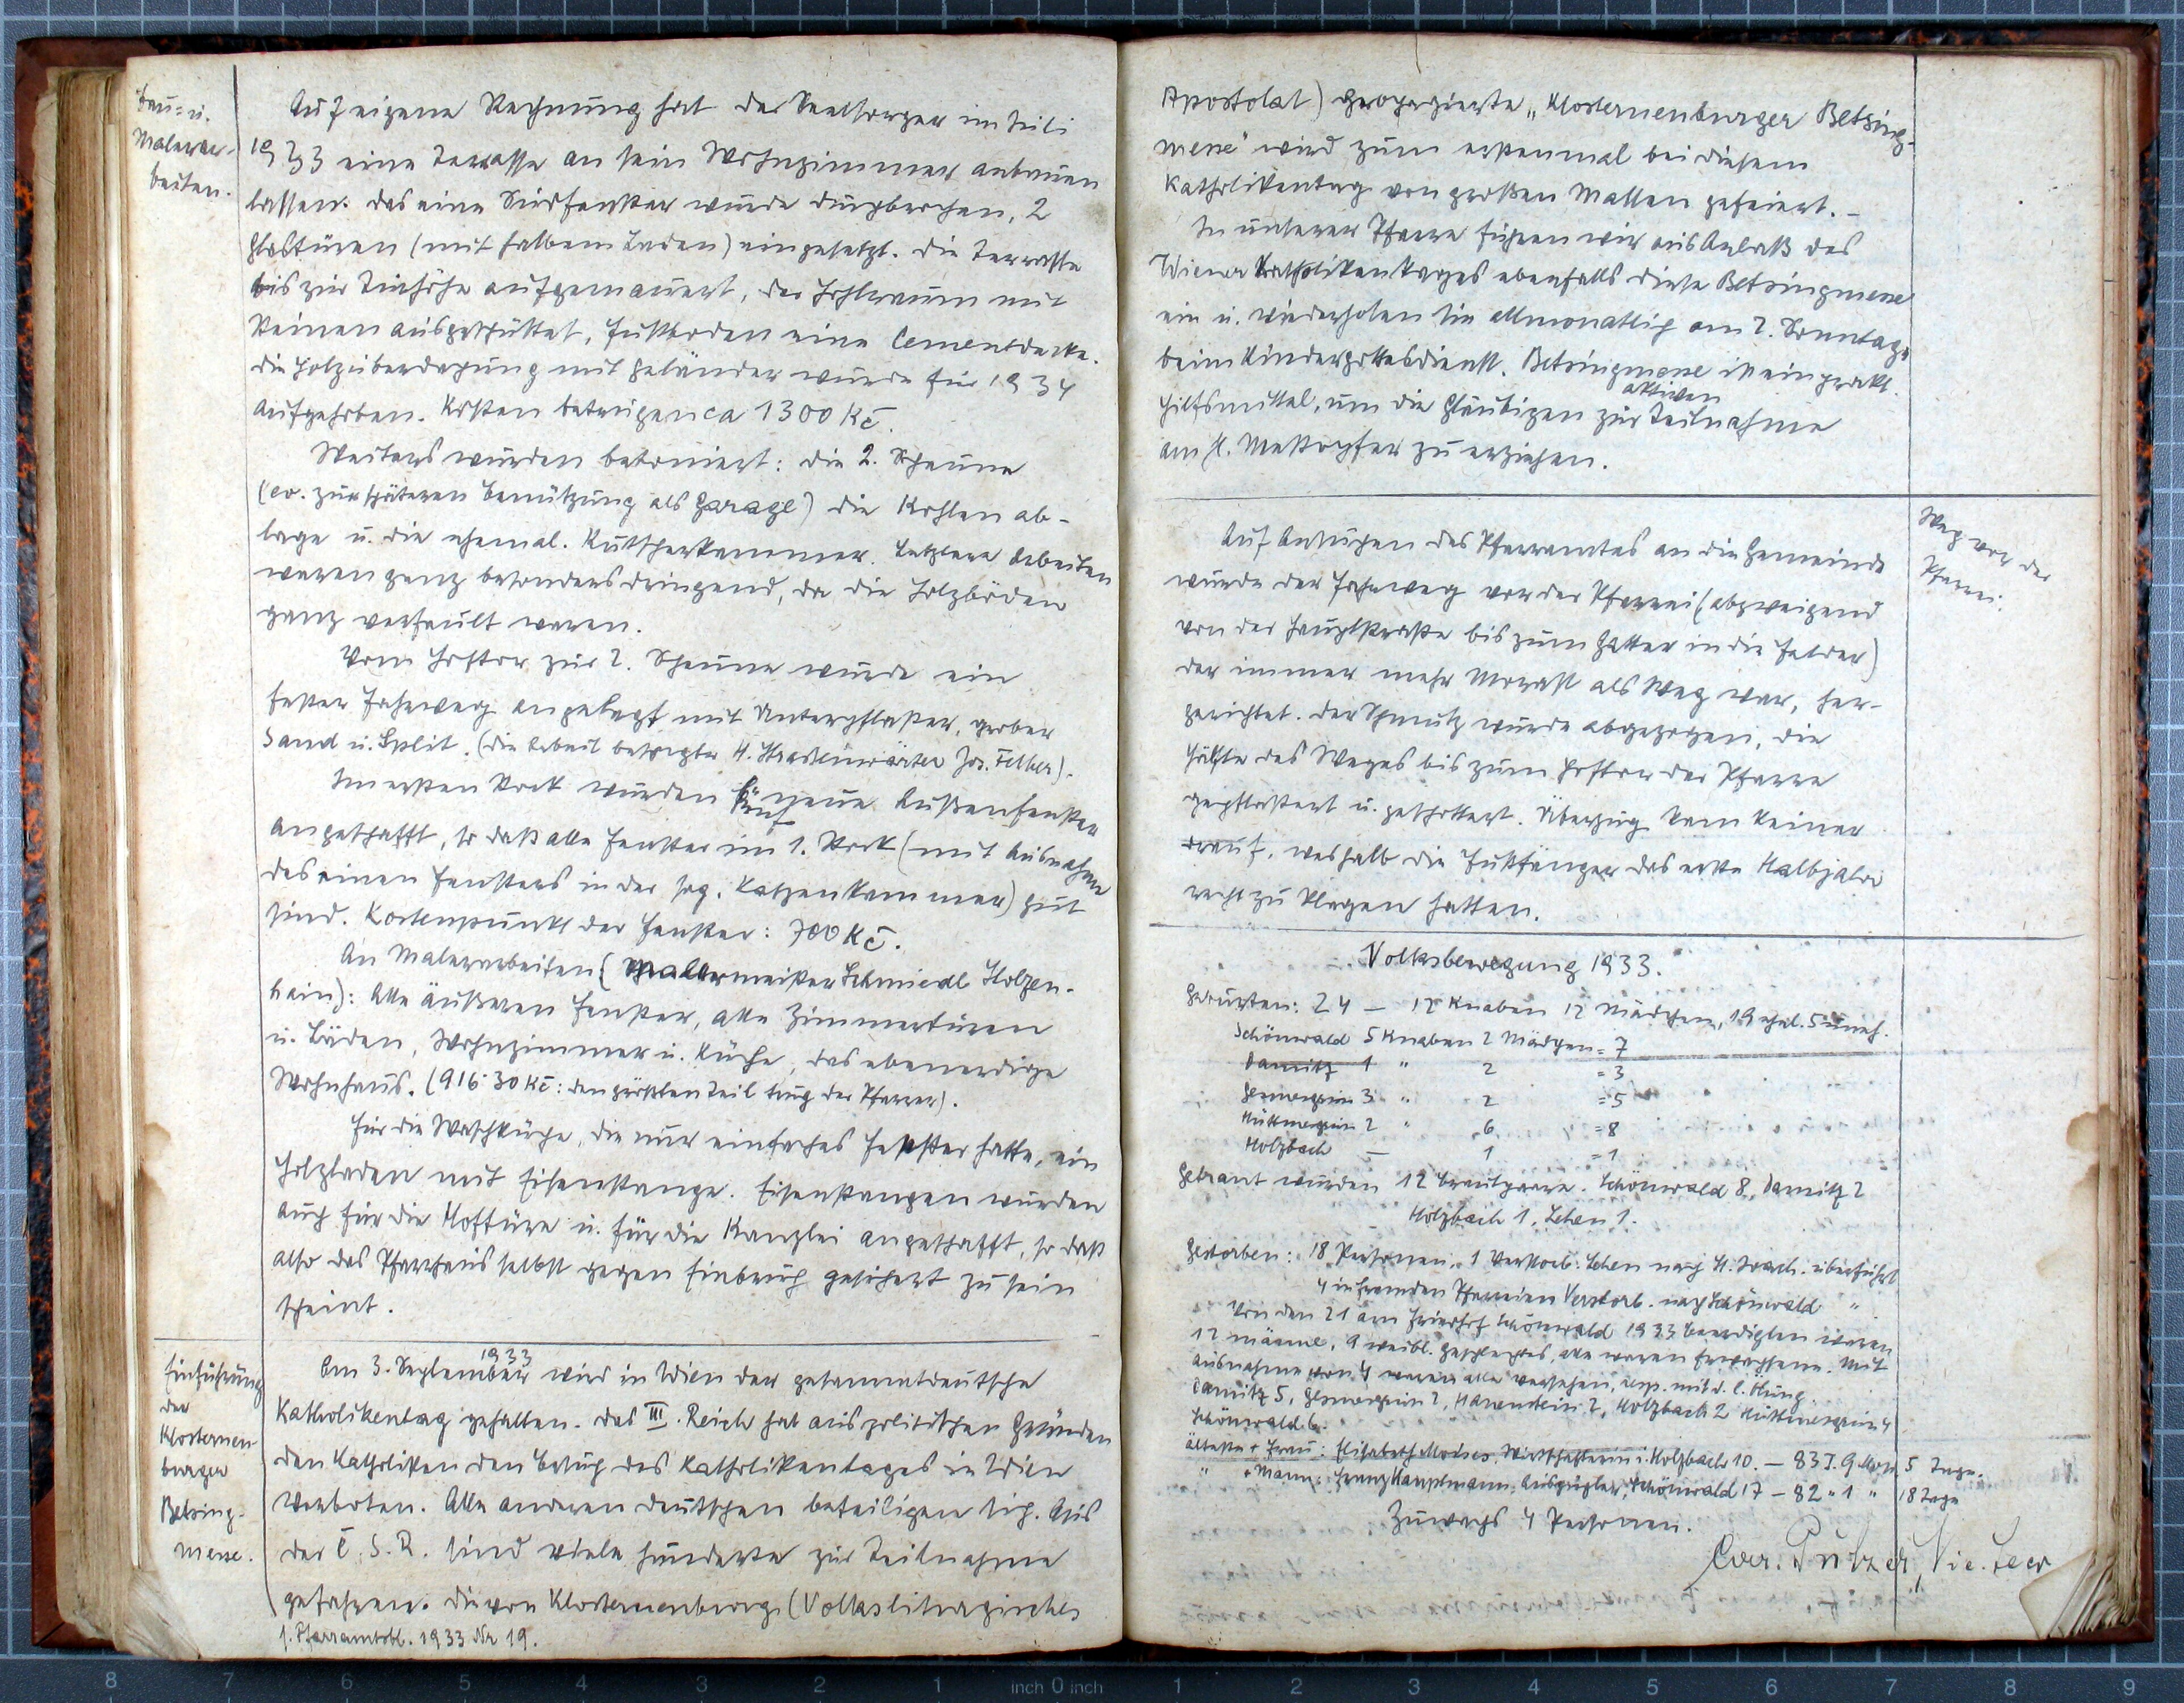 Bau- u.
Malerar-
beiten.
Auf eigene Rechnung hat der Seelsorger im Juli
1933 eine Terrasse an sein Wohnzimmer anbauen
lassen. Das eine Südfenster wurde durchbrochen, 2
Glastüren (mit halbem Laden) eingesetzt. Die Terrasse
bis zur Türhöhe aufgemauert, der Hohlraum mit
Steinen ausgeschüttet, Fußboden eine Cementdecke.
Die Holzüberdachung mit Geländer wurde für 1934
aufgehoben. Kosten betrugen ca 1300 Kč.
Weiters wurden betoniert: die 2. Scheune
(ev. zur späteren Benützung als Garage) die Kohlenab-
lage u. die ehemal. Kutscherkammer. Letztere Arbeiten
waren ganz besonders dringend, da die Holzböden
ganz verfault waren.
Vom Hoftor zur 2. Scheune wurde ein
fester Fahrweg angelegt mit Unterpflaster, grober
Sand u. Split. (Die Arbeit besorgte H. Strassenwärter Jos. Felber).
Im ersten Stock wurden fünf neue Außenfenster
angeschafft, so daß alle Fenster im 1. Stock (mit Ausnahme
des einen Fensters in der sog. Katzenkammer) gut
sind. Kostenpunkt der Fenster: 700 Kč.
An Malerarbeiten (Malermeister Schmiedl Holzen-
hain): Alle äußeren Fenster, alle Zimmertüren
u. Läden, Wohnzimmer u. Küche, das ebenerdige
Wohnhaus. (916·30 Kč: den größten Teil trug der Pfarrer).
Für die Waschküche, die nur einfaches Fenster hatte, ein
Holzladen mit Eisenstange. Eisenstangen wurden
auch für die Hoftüre u. für die Kanzlei angeschafft, so daß
also das Pfarrhaus selbst gegen Einbruch gesichert zu sein
scheint.
Einführung
der
Klosterneu-
burger
Betsing-
messe.
Am 3. September 1933 wird in Wien der gesamtdeutsche
Katholikentag gehalten. Das III. Reich hat aus politischen Gründen
den Katholiken den Besuch des Katholikentages in Wien
verboten. Alle anderen Deutschen beteiligen sich. Aus
der Č.S.R. sind viele Hunderte zur Teilnahme
gefahren. Die von Klosterneuburg (Volksliturgisches
s. Pfarramtsbl. 1933 Nr 19.
Apostolat) propagierte „Klosterneuburger Betsing-
messe" wird zum erstenmal bei diesem
Katholikentag von großen Massen gefeiert. –
In unserer Pfarre führen wir aus Anlaß des
Wiener Katholikentages ebenfalls diese Betsingmesse
ein u. wiederholen sie allmonatlich am 2. Sonntage
beim Kindergottesdienst. Betsingmesse ist ein prakt.
Hilfsmittel, um die Gläubigen zur aktiven Teilnahme
am hl. Messopfer zu erziehen.
Weg vor der
Pfarrei.
Auf Ansuchen des Pfarramtes an die Gemeinde
wurde der Fahrweg vor der Pfarrei (abzweigend
von der Hauptstraße bis zum Gatter in die Felder)
der immer mehr Morast als Weg war, her-
gerichtet. Der Schmutz wurde abgezogen, die
Hälfte des Weges bis zum Hoftor der Pfarre
gepflastert u. geschottert. Überzug kam keiner
drauf, weshalb die Fußgänger das erste Halbjahr
recht zu klagen hatten.
Volksbewegung 1933.
Geburten: 24 – 12 Knaben 12 Mädchen, 19 ehel. 5 uneh.
Schönwald 5 Knaben 2 Mädchen = 7
Damitz 1 " 2 = 3
Gesmesgrün 3 " 2 = 5
Hüttmesgrün 2 " 6 = 8
Holzbach – 1 = 1
Getraut wurden 12 Brautpaare. Schönwald 8, Damitz 2
Holzbach 1, Lehen 1.
Gestorben: 18 Personen, 1 Verstorb. Lehen nach überführt
4 in fremden Pfarreien Verstorb. nach Schönwald "
Von den 21 am Friedhof Schönwald 1933 Beerdigten waren
12 männl., 9 weibl. Geschlechtes, alle waren Erwachsene. Mit
Ausnahme von 4 waren alle versehen, resp. mit d. l. Ölung.
Damitz 5, Gesmesgrün 2, Hauenstein 2, Holzbach 2 Hüttmesgrün 4
Schönwald 6.
älteste + Frau: Elisabeth Moises, Wirtschafterin i. Holzbach 10. – 83 J. 9 Mon. 5 Tage.
" + Mann: Franz Hauptmann, Ausgügler, Schönwald 17 – 82 " 1 " 18 Tage
Zuwachs 4 Personen.